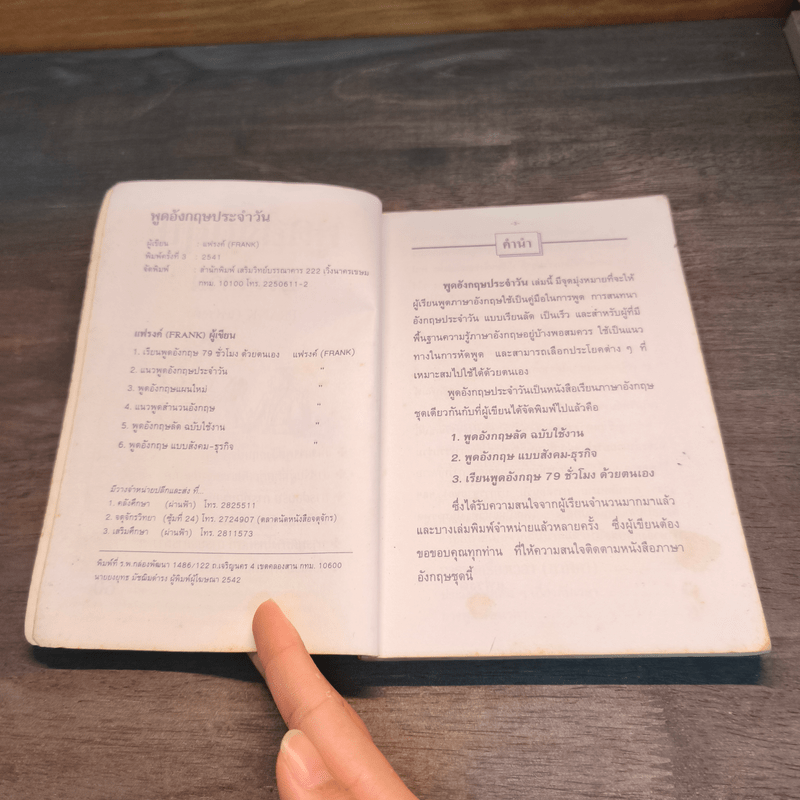 พูดอังกฤษประจำวัน
ผู้เขียน : แฟรงค์ (FRANK)
พิมพ์ครั้งที่ 3 : 2541
จัดพิมพ์ : สำนักพิมพ์ เสริมวิทย์บรรณาคาร 222 เวิ้งนาครเขษม
กทม. 10100 โทร. 2250611-2
แฟรงค์ (FRANK) ผู้เขียน
1. เรียนพูดอังกฤษ 79 ชั่วโมง ด้วยตนเอง แฟรงค์ (FRANK)
2. แนวพูดอังกฤษประจำวัน "
3. พูดอังกฤษแผนใหม่ "
4. แนวพูดสำนวนอังกฤษ "
5. พูดอังกฤษลัด ฉบับใช้งาน "
6. พูดอังกฤษ แบบสังคม-ธุรกิจ "
มีวางจำหน่ายปลีกและส่ง ที่...
1. คลังศึกษา (ผ่านฟ้า) โทร. 2825511
2. จตุจักรวิทยา (ซุ้มที่ 24) โทร. 2724907 (ตลาดนัดหนังสือจตุจักร)
3. เสริมศึกษา (ผ่านฟ้า) โทร. 2811573
พิมพ์ที่ ร.พ.กล่องพัฒนา 1486/122 ถ.เจริญนคร 4 เขตคลองสาน กทม. 10600
นายยงยุทธ มัชฌิมดำรง ผู้พิมพ์ผู้โฆษณา 2542
คำนำ
พูดอังกฤษประจำวัน เล่มนี้ มีจุดมุ่งหมายที่จะให้
ผู้เรียนพูดภาษาอังกฤษใช้เป็นคู่มือในการพูด การสนทนา
อังกฤษประจำวัน แบบเรียนลัด เป็นเร็ว และสำหรับผู้ที่มี
พื้นฐานความรู้ภาษาอังกฤษอยู่บ้างพอสมควร ใช้เป็นแนว
ทางในการหัดพูด และสามารถเลือกประโยคต่าง ๆ ที่
เหมาะสมไปใช้ได้ด้วยตนเอง
พูดอังกฤษประจำวันเป็นหนังสือเรียนภาษาอังกฤษ
ชุดเดียวกันกับที่ผู้เขียนได้จัดพิมพ์ไปแล้วคือ
1. พูดอังกฤษลัด ฉบับใช้งาน
2. พูดอังกฤษ แบบสังคม-ธุรกิจ
3. เรียนพูดอังกฤษ 79 ชั่วโมง ด้วยตนเอง
ซึ่งได้รับความสนใจจากผู้เรียนจำนวนมากมาแล้ว
และบางเล่มพิมพ์จำหน่ายแล้วหลายครั้ง ซึ่งผู้เขียนต้อง
ขอขอบคุณทุกท่าน ที่ให้ความสนใจติดตามหนังสือภาษา
อังกฤษชุดนี้